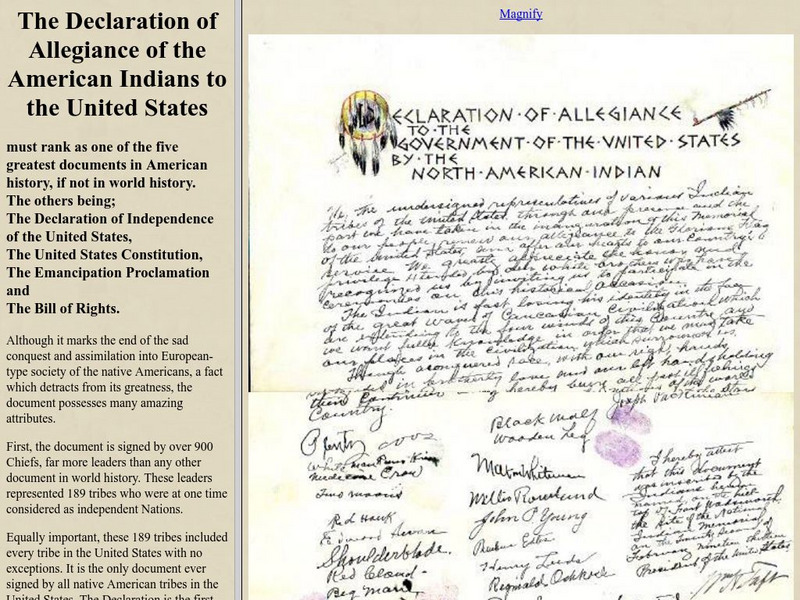 The Declaration of
Allegiance of the
American Indians to
the United States
must rank as one of the five
greatest documents in American
history, if not in world history.
The others being;
The Declaration of Independence
of the United States,
The United States Constitution,
The Emancipation Proclamation
and
The Bill of Rights.
Although it marks the end of the sad
conquest and assimilation into European-
type society of the native Americans, a fact
which detracts from its greatness, the
document possesses many amazing
attributes.
First, the document is signed by over 900
Chiefs, far more leaders than any other
document in world history. These leaders
represented 189 tribes who were at one time
considered as independent Nations.
Equally important, these 189 tribes included
every tribe in the United States with no
exceptions. It is the only document ever
signed by all native American tribes in the
United States. The Declaration is the first
Magnify
DECLARATION·OF·ALLEGIANCE
TO·THE
GOVERNMENT·OF·THE·VNITED·STATES
BY·THE
NORTH·AMERICAN·INDIAN
We, the undersigned representatives of various Indian
tribes of the United States, through our presence and the
part we have taken in the inauguration of this Memorial
to our people, renew our allegiance to the Glorious Flag
of the United States and offer our hearts to our Country's
service. We greatly appreciate the honor and
privilege extended by our white brothers who have
recognized us by inviting us to participate in the
ceremonies on this historical occasion.
The Indian is fast losing his identity in the face
of the great waves of Caucasian civilization which
are extending to the four winds of this Country and
we want fuller knowledge in order that we may take
our places in the civilization which surrounds us.
Though a conquered race, with our right hands
in brotherly love and our left hand holding
hereby bury all
Country.
Plenty coos
White man Runs Him
Medicine Crow
Two moons
Red Hawk
Shoulderblade.
Red Cloud-
Big Man
Black Wolf
Wooden Leg
Willis Rowland
John P Young
Reuben Estes
Henry Leeds
Reginald Oshkosh
I hereby attest
that this document
was inscribed by the
Indians herein
named on the hill
top of Fort Wadsworth,
the Site of the National
Indian Memorial
February nineteen thirteen
President of the United States
Wm H Taft